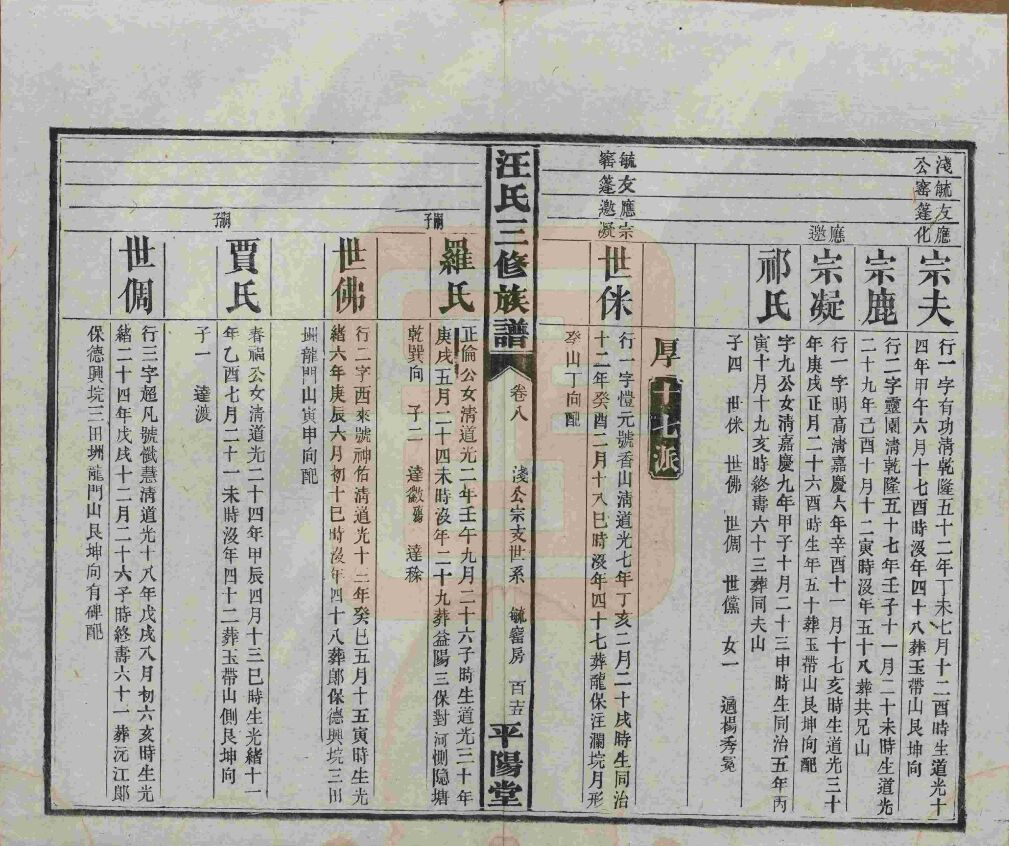 淺毓友應
公窰篷化
宗夫
行一字有功清乾隆五十二年丁未七月十二酉時生道光十
四年甲午六月十七酉時沒年四十八葬玉帶山艮坤向
宗鹿
行二字靈園清乾隆五十七年壬子十一月二十未時生道光
二十九年己酉十月十二寅時沒年五十八葬共兄山
應
邀
宗凝
行一字明高清嘉慶六年辛酉十一月十七亥時生道光三十
年庚戌正月二十六酉時生年五十葬玉帶山艮坤向配
祁氏
字九公女清嘉慶九年甲子十月二十三申時生同治五年丙
寅十月十九亥時終壽六十三葬同夫山
子四 世侎 世佛 世倜 世儻 女一 適楊秀冕
厚十七派
毓友應宗
窰篷邀凝
世侎
行一字愷元號香山清道光七年丁亥二月二十戌時生同治
十二年癸酉二月十八巳時沒年四十七葬龍保汪瀾坑月形
癸山丁向配
汪氏三修族譜
卷八
淺公宗支世系 毓窰房
平陽堂
嗣子
羅氏
正倫公女清道光二年壬午九月二十六子時生道光三十年
庚戌五月二十四未時沒年二十九葬益陽三保對河側隐塘
乾巽向 子二 達徽 達穄
世佛
行二字西來號神佑清道光十三年癸巳五月十五寅時生光
緒六年庚辰六月初十巳時沒年四十八葬郎保德興坑三田
坍龍門山寅申向配
嗣子
賈氏
春福公女清道光二十四年甲辰四月十三巳時生光緒十一
年乙酉七月二十一未時沒年四十二葬玉帶山側艮坤向
子一 達渡
世倜
行三字超凡號懺慧清道光十八年戊戌八月初六亥時生光
緒二十四年戊戌十二月二十六子時終壽六十一葬沅江郎
保德興坑三田坍龍門山艮坤向有碑配